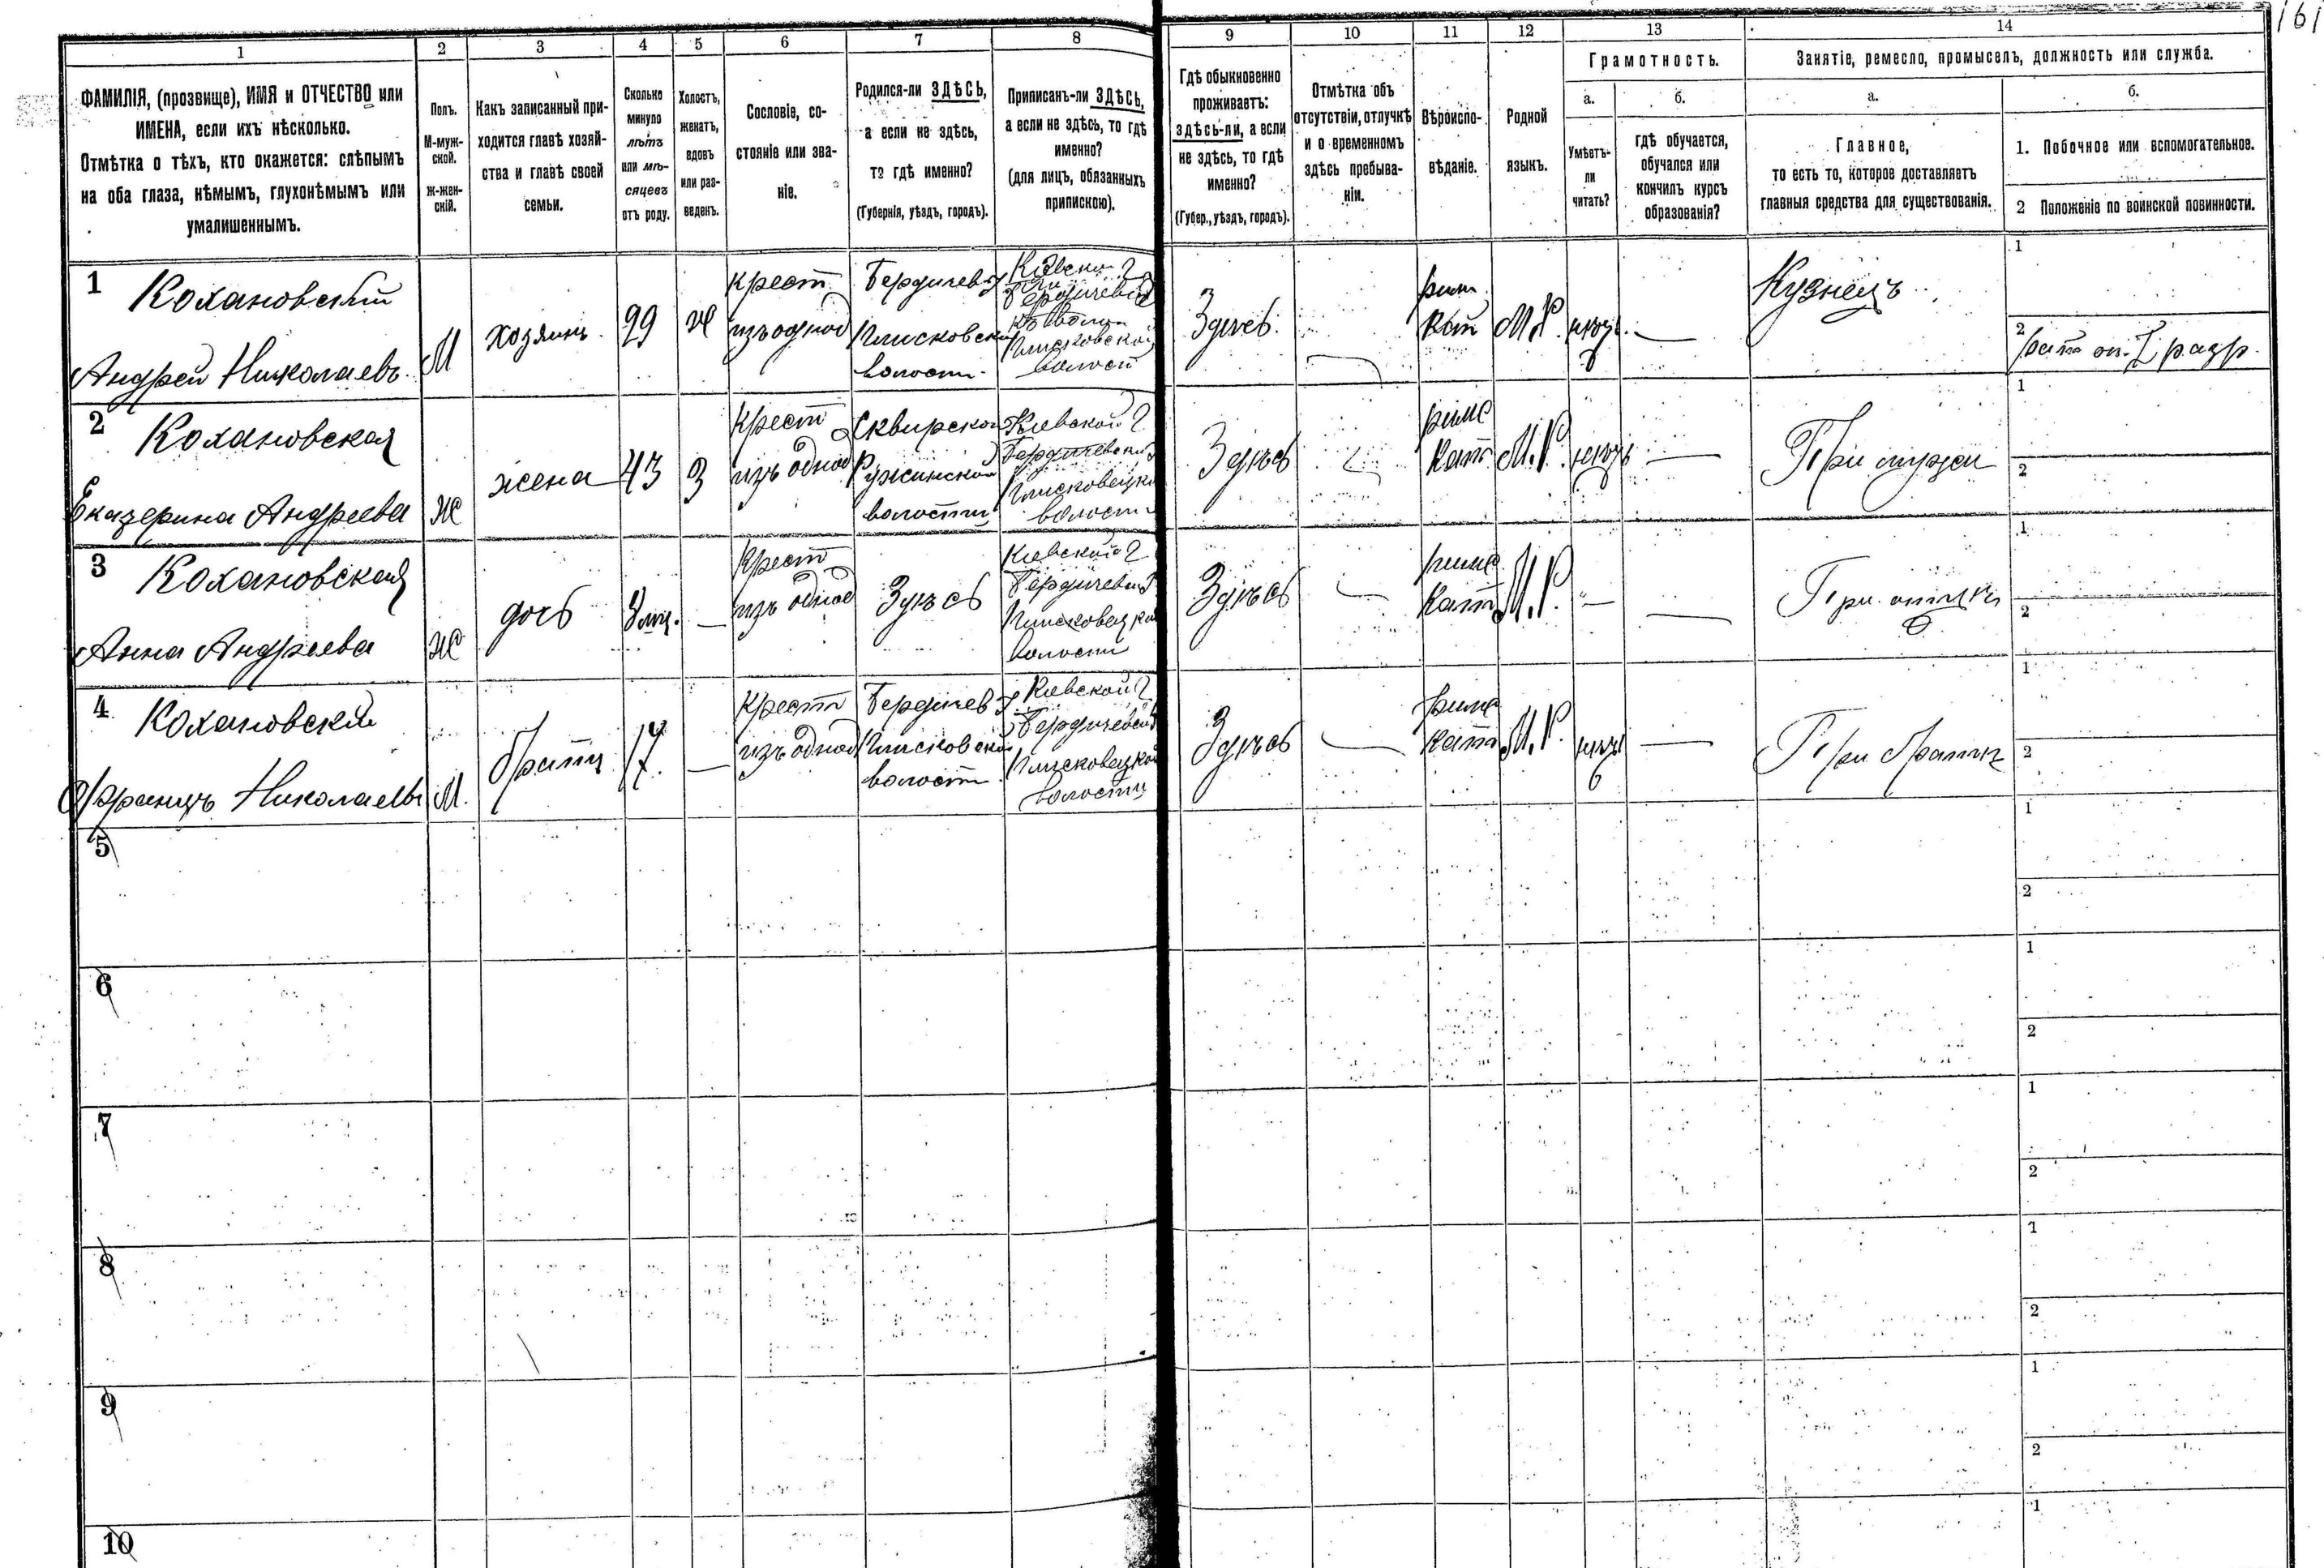 161
1 2 3 4 5 6 7 8 9 10 11 12 13 14
ФАМИЛІЯ, (прозвище), ИМЯ и ОТЧЕСТВО или
ИМЕНА, если ихъ нѣсколько.
Отмѣтка о тѣхъ, кто окажется: слѣпымъ
на оба глаза, нѣмымъ, глухонѣмымъ или
умалишеннымъ.
Полъ.
М-муж-
ской.
ж-жен-
скій.
Какъ записанный при-
ходится главѣ хозяй-
ства и главѣ своей
семьи.
Сколько
минуло
лѣтъ
или мѣ-
сяцевъ
отъ роду.
Холостъ,
женатъ,
вдовъ
или раз-
веденъ.
Сословіе, со-
стояніе или зва-
ніе.
Родился-ли ЗДѢСЬ,
а если не здѣсь,
то гдѣ именно?
(Губернія, уѣздъ, городъ).
Приписанъ-ли ЗДѢСЬ,
а если не здѣсь, то гдѣ
именно?
(для лицъ, обязанныхъ
припискою).
Гдѣ обыкновенно
проживаетъ:
здѣсь-ли, а если
не здѣсь, то гдѣ
именно?
(Губер., уѣздъ, городъ).
Отмѣтка объ
отсутствіи, отлучкѣ
и о временномъ
здѣсь пребыва-
ніи.
Вѣроиспо-
вѣданіе.
Родной
языкъ.
Грамотность.
а.
Умѣетъ-
ли
читать?
б.
гдѣ обучается,
обучался или
кончилъ курсъ
образованія?
Занятіе, ремесло, промыселъ, должность или служба.
а.
Главное,
то есть то, которое доставляетъ
главныя средства для существованія.
б.
1. Побочное или вспомогательное.
2 Положеніе по воинской повинности.
1
Кохановскій
Андрей Николаевъ
М
хозяинъ
29
ж
крест
изъ однод
Бердичев у
Плисковской
волости
Киевской г
Бердичевск
Плисковской
волост
Здѣсь
рим
кат
М.Р.
нѣтъ
—
Кузнецъ
1
2
рат оп. I разр.
2
Кохановская
Екатерина Андреева
Ж
жена
43
З
Крест
изъ однод
Сквирской
Ружинской
волости
Киевской г
Бердичевск
Плисковецкой
волости
Здѣсь
—
римс
кат
М.Р.
нѣтъ
—
При мужѣ
1
2
3
Кохановская
Анна Андреева
Ж
дочь
8 мц.
—
Крест
изъ однод
Здѣсь
Киевской г
Бердичевск
Плисковецкой
волости
Здѣсь
—
римс
кат
М.Р.
—
—
При отцѣ
1
2
4
Кохановский
Францъ Николаевъ
М.
братъ
17
—
Крест
изъ однод
Бердичев у
Плисковской
волости
Киевской г
Бердичевск
Плисковецкой
волости
Здѣсь
—
римс
кат
М.Р.
нѣтъ
—
При братѣ
1
2
5
1
2
6
1
2
7
1
2
8
1
2
9
1
2
10
1